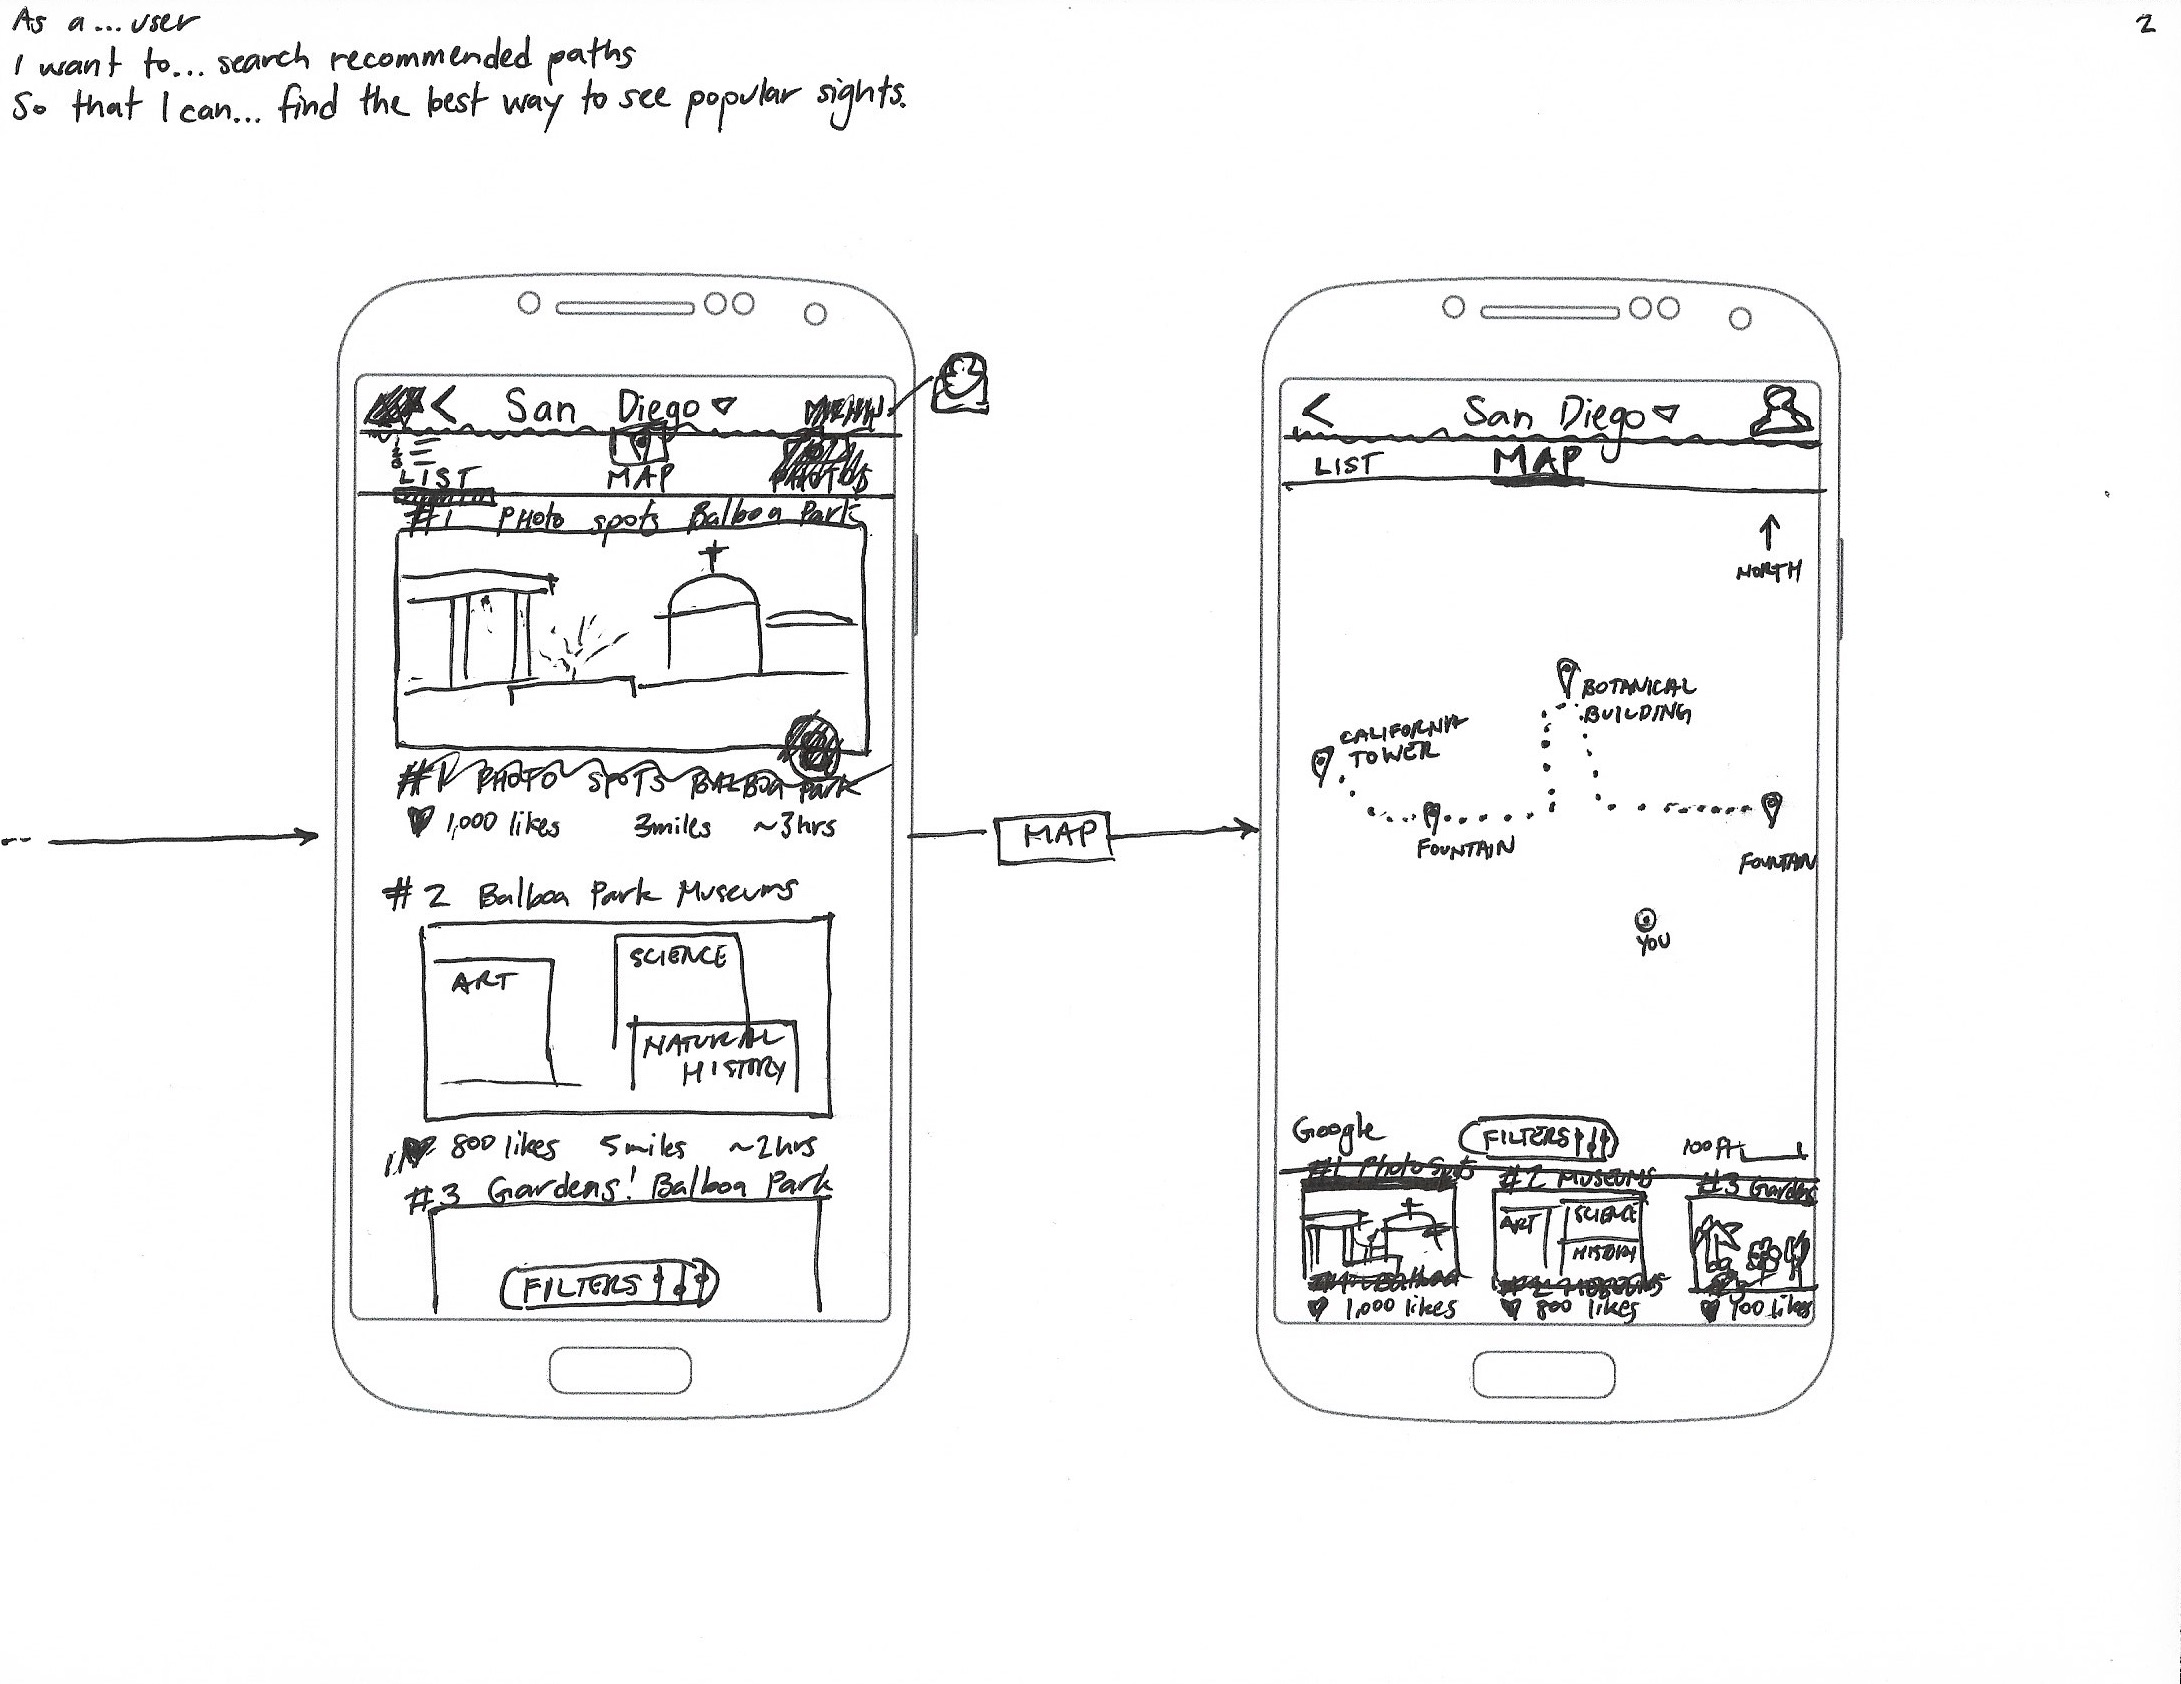 As a... user
2
I want to... search recommended paths
So that I can... find the best way to see popular sights.
San Diego
LIST
MAP
PHOTOS
#1 PHOTO spots Balboa Park
#1 PHOTO SPOTS BALBOA Park
1,000 likes 3miles ~3hrs
#2 Balboa Park Museums
ART
SCIENCE
NATURAL
HISTORY
800 likes 5miles ~2hrs
#3 Gardens! Balboa Park
FILTERS
MAP
San Diego
LIST
MAP
NORTH
BOTANICAL
BUILDING
CALIFORNIA
TOWER
FOUNTAIN
FOUNTAIN
YOU
Google
FILTERS
100Ft
#1 Photo Spots
#2 MUSEUMS
#3 Gardens
ART
SCIENCE
HISTORY
#2 MUSEUMS
1,000 likes
800 likes
700 likes